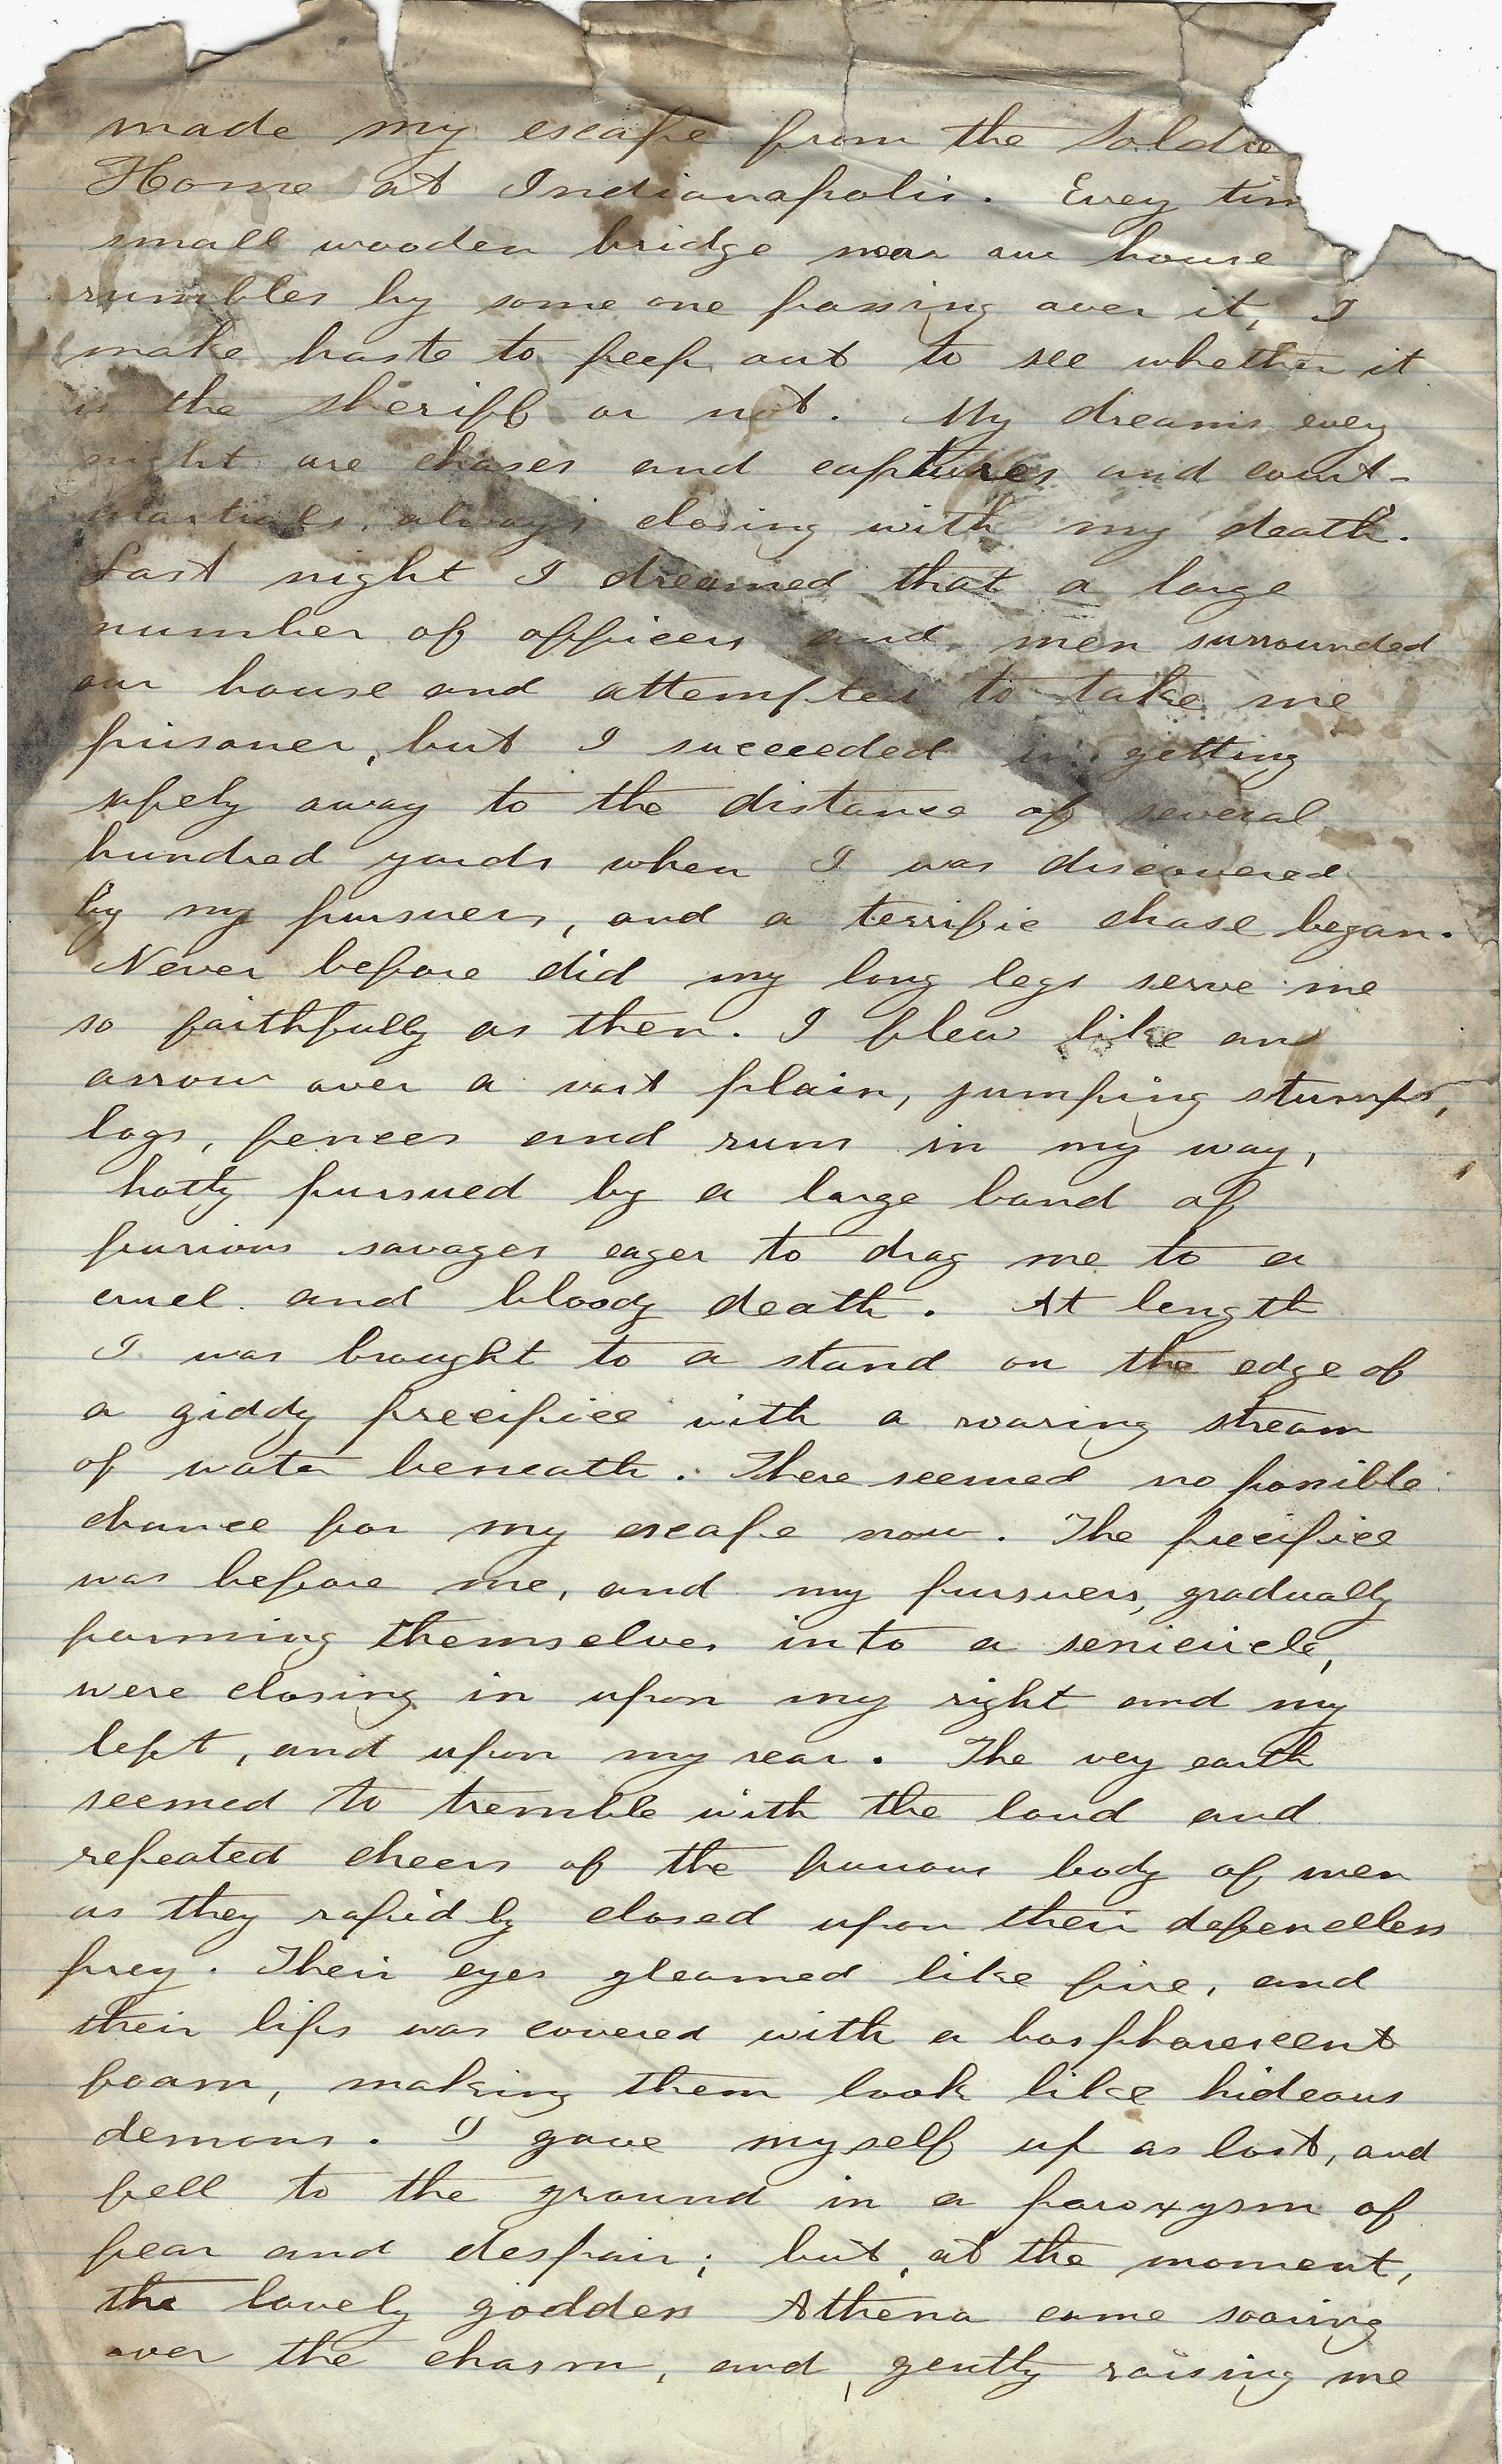 made my escape from the Soldie
Home at Indianapolis. Evey tim
small wooden bridge near our house
rumbles by some one passing over it, I
make haste to peep out to see whether it
is the sheriff or not. My dreams evey
night are chases and captures and court-
martials, always closing with my death.
Last night I dreamed that a large
number of officers and men surrounded
our house and attempted to take me
prisoner, but I succeeded in getting
safely away to the distance of several
hundred yards when I was discovered
by my pursuers, and a terrific chase began.
Never before did my long legs serve me
so faithfully as then. I flew like an
arrow over a vast plain, jumping stumps,
logs, fences and runs in my way,
hotly pursued by a large band of
furious savages eager to drag me to a
cruel and bloody death. At length
I was brought to a stand on the edge of
a giddy precipice with a roaring stream
of water beneath. There seemed no possible
chance for my escape now. The precipice
was before me, and my pursuers, gradually
forming themselves into a semicircle,
were closing in upon my right and my
left, and upon my rear. The vey earth
seemed to tremble with the loud and
repeated cheers of the furious body of men
as they rapidly closed upon their defenceless
prey. Their eyes gleamed like fire, and
their lips was covered with a bosphorescent
foam, making them look like hideous
demons. I gave myself up as lost, and
fell to the ground in a paroxysm of
fear and despair; but, at the moment,
the lovely goddess Athena came soaring
over the chasm, and, gently raising me